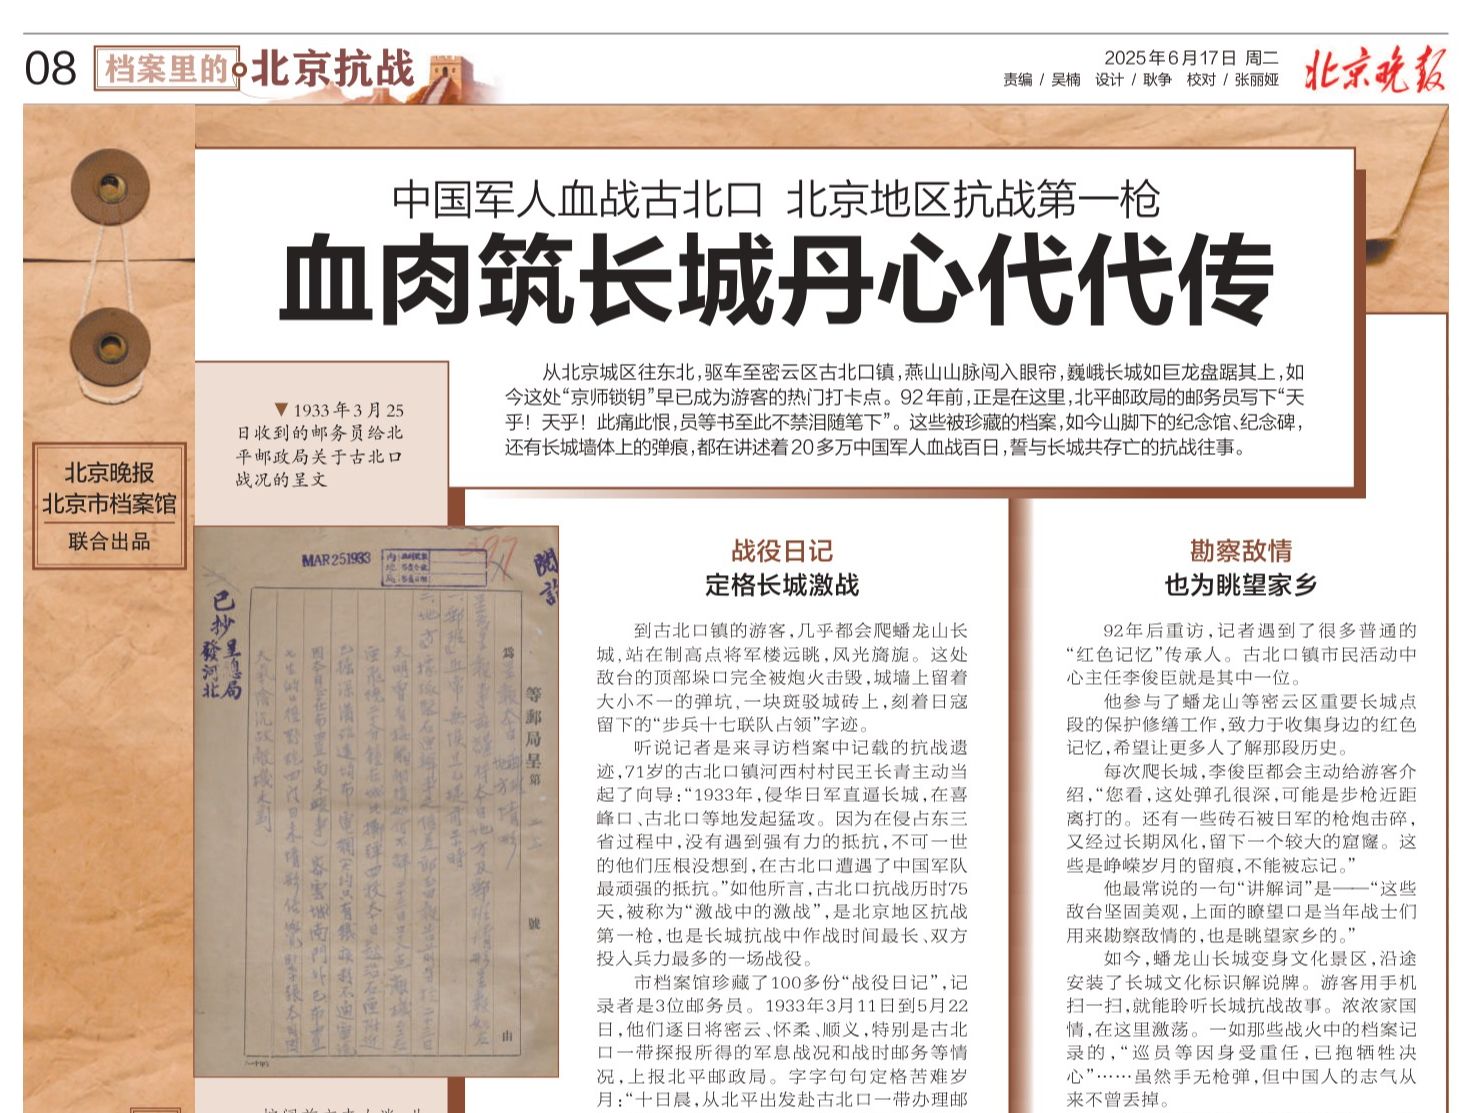 08 档案里的 北京抗战
2025年6月17日 周二
责编 / 吴楠 设计 / 耿争 校对 / 张丽娅
北京晚报
中国军人血战古北口 北京地区抗战第一枪
血肉筑长城丹心代代传
从北京城区往东北，驱车至密云区古北口镇，燕山山脉闯入眼帘，巍峨长城如巨龙盘踞其上，如
今这处“京师锁钥”早已成为游客的热门打卡点。92年前，正是在这里，北平邮政局的邮务员写下“天
乎！天乎！此痛此恨，员等书至此不禁泪随笔下”。这些被珍藏的档案，如今山脚下的纪念馆、纪念碑，
还有长城墙体上的弹痕，都在讲述着20多万中国军人血战百日，誓与长城共存亡的抗战往事。
▼1933年3月25
日收到的邮务员给北
平邮政局关于古北口
战况的呈文
北京晚报
北京市档案馆
联合出品
MAR 25 1933
已抄呈總局
發河北
等郵局呈第
號
由
战役日记
定格长城激战
到古北口镇的游客，几乎都会爬蟠龙山长
城，站在制高点将军楼远眺，风光旖旎。这处
敌台的顶部垛口完全被炮火击毁，城墙上留着
大小不一的弹坑，一块斑驳城砖上，刻着日寇
留下的“步兵十七联队占领”字迹。
听说记者是来寻访档案中记载的抗战遗
迹，71岁的古北口镇河西村村民王长青主动当
起了向导：“1933年，侵华日军直逼长城，在喜
峰口、古北口等地发起猛攻。因为在侵占东三
省过程中，没有遇到强有力的抵抗，不可一世
的他们压根没想到，在古北口遭遇了中国军队
最顽强的抵抗。”如他所言，古北口抗战历时75
天，被称为“激战中的激战”，是北京地区抗战
第一枪，也是长城抗战中作战时间最长、双方
投入兵力最多的一场战役。
市档案馆珍藏了100多份“战役日记”，记
录者是3位邮务员。1933年3月11日到5月22
日，他们逐日将密云、怀柔、顺义，特别是古北
口一带探报所得的军息战况和战时邮务等情
况，上报北平邮政局。字字句句定格苦难岁
月：“十日晨，从北平出发赴古北口一带办理邮
勘察敌情
也为眺望家乡
92年后重访，记者遇到了很多普通的
“红色记忆”传承人。古北口镇市民活动中
心主任李俊臣就是其中一位。
他参与了蟠龙山等密云区重要长城点
段的保护修缮工作，致力于收集身边的红色
记忆，希望让更多人了解那段历史。
每次爬长城，李俊臣都会主动给游客介
绍，“您看，这处弹孔很深，可能是步枪近距
离打的。还有一些砖石被日军的枪炮击碎，
又经过长期风化，留下一个较大的窟窿。这
些是峥嵘岁月的留痕，不能被忘记。”
他最常说的一句“讲解词”是——“这些
敌台坚固美观，上面的瞭望口是当年战士们
用来勘察敌情的，也是眺望家乡的。”
如今，蟠龙山长城变身文化景区，沿途
安装了长城文化标识解说牌。游客用手机
扫一扫，就能聆听长城抗战故事。浓浓家国
情，在这里激荡。一如那些战火中的档案记
录的，“巡员等因身受重任，已抱牺牲决
心”……虽然手无枪弹，但中国人的志气从
来不曾丢掉。